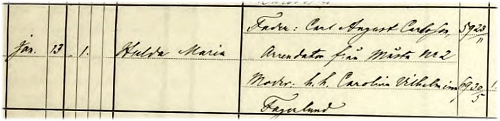 Fader: Carl August Carlsson, 59 23/11
jan. 13 1. Hulda Maria Arrendator från Måsta No 2
Moder: h. h. Carolina Vilhelmina 59 20/5 1.
Fagerlund